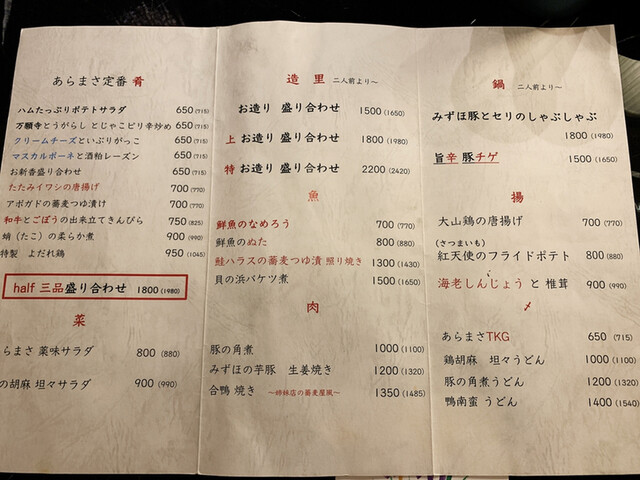 あらまさ定番 肴
ハムたっぷりポテトサラダ 650 (715)
万願寺とうがらし とじゃこピリ辛炒め 650 (715)
クリームチーズといぶりがっこ 650 (715)
マスカルポーネと酒粕レーズン 650 (715)
お新香盛り合わせ 650 (715)
たたみイワシの唐揚げ 700 (770)
アボガドの蕎麦つゆ漬け 700 (770)
和牛とごぼうの出来立てきんぴら 750 (825)
蛸(たこ)の柔らか煮 900 (990)
特製 よだれ鶏 950 (1045)
half 三品盛り合わせ 1800 (1980)
菜
らまさ 薬味サラダ 800 (880)
の胡麻 坦々サラダ 900 (990)
造 里 二人前より〜
お造り 盛り合わせ 1500 (1650)
上 お造り 盛り合わせ 1800 (1980)
特 お造り 盛り合わせ 2200 (2420)
魚
鮮魚のなめろう 700 (770)
鮮魚のぬた 800 (880)
鮭ハラスの蕎麦つゆ漬 照り焼き 1300 (1430)
貝の浜バケツ煮 1500 (1650)
肉
豚の角煮 1000 (1100)
みずほの芋豚 生姜焼き 1200 (1320)
合鴨 焼き 〜姉妹店の蕎麦屋風〜 1350 (1485)
鍋 二人前より〜
みずほ豚とセリのしゃぶしゃぶ
1800 (1980)
旨辛 豚チゲ 1500 (1650)
揚
大山鶏の唐揚げ 700 (770)
(さつまいも)
紅天使のフライドポテト 800 (880)
海老しんじょう と 椎茸 900 (990)
〆
あらまさTKG 650 (715)
鶏胡麻 坦々うどん 1000 (1100)
豚の角煮うどん 1200 (1320)
鴨南蛮 うどん 1400 (1540)